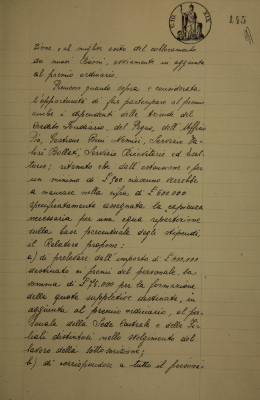 145
zione e al miglior esito del collocamento
dei nuovi Buoni, ovviamente in aggiunta
al premio ordinario.
Premesso quanto sopra e considerata
l'opportunità di far partecipare al premio
anche i dipendenti delle Aziende del
Credito Fondiario, del Pegno, dell'Ufficio
Pio, Gestione Beni Nemici, Servizio Va-
lori Bollati, Servizio Ricevitorie ed Esat-
torie; ritenuto che dall'estensione e per
un minimo di £ 500 ciascuno verrebbe
a mancare nella cifra di £ 600.000
specificatamente assegnata la capienza
necessaria per una equa ripartizione
sulla base percentuale degli stipendi,
il Relatore propone:
a) di prelevare dall'importo di £
destinato ai premi del personale, la
somma di £ 75.000 per la formazione
delle quote suppletive destinate, in
aggiunta al premio ordinario, al per-
sonale della Sede Centrale e delle Fi-
liali distintosi nello svolgimento del
lavoro della sottoscrizione;
b) di corrispondere a tutto il persona-